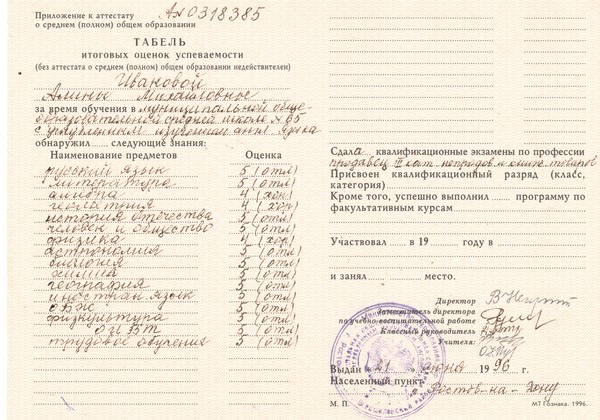 Приложение к аттестату А № 0318385
о среднем (полном) общем образовании
ТАБЕЛЬ
итоговых оценок успеваемости
(без аттестата о среднем (полном) общем образовании недействителен)
Ивановой
Алине Михайловне
за время обучения в муниципальной обще-
образовательной средней школе № 65
с углубленным изучением англ. языка
обнаружил ...... следующие знания:
Наименование предметов Оценка
русский язык 5 (отл)
литература 5 (отл)
алгебра 4 (хор)
геометрия 4 (хор)
история отечества 5 (отл)
человек и общество 5 (отл)
физика 4 (хор)
астрономия 5 (отл)
биология 5 (отл)
химия 5 (отл)
география 5 (отл)
иностран. язык 5 (отл)
ОБЖ 5 (отл)
физкультура 5 (отл)
ОИВТ 5 (отл)
трудовое обучение 5 (отл)
Сдала квалификационные экзамены по профессии
продавец III кат. непродов. и книж. товаров
Присвоен квалификационный разряд (класс,
категория)
Кроме того, успешно выполнил ........ программу по
факультативным курсам
Участвовал ...... в 19 ...... году в
и занял ...... место.
Директор
Заместитель директора
по учебно-воспитательной работе
Классный руководитель
Учителя:
Выдан 21 июня 1996 г.
Населенный пункт
Ростов-на-Дону
М. П.
МТ Гознака. 1996.